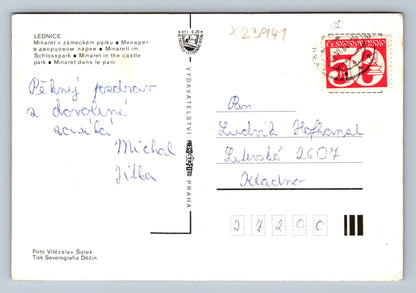 LEDNICE
Minaret v zámeckém parku ● Минарет
в дворцовом парке ● Minarett im
Schlosspark ● Minaret in the castle
park ● Minaret dans le parc
Pěkný pozdrav
z dovolené
Michal
Jitka
Foto Vítězslav Solek
Tisk Severografia Děčín
VYDAVATELSTVÍ
PRAHA
X23941
ČESKOSLOVENSKO
50
Pan
Ludvík Hofhansl
Litevská 2607
Kladno
27200